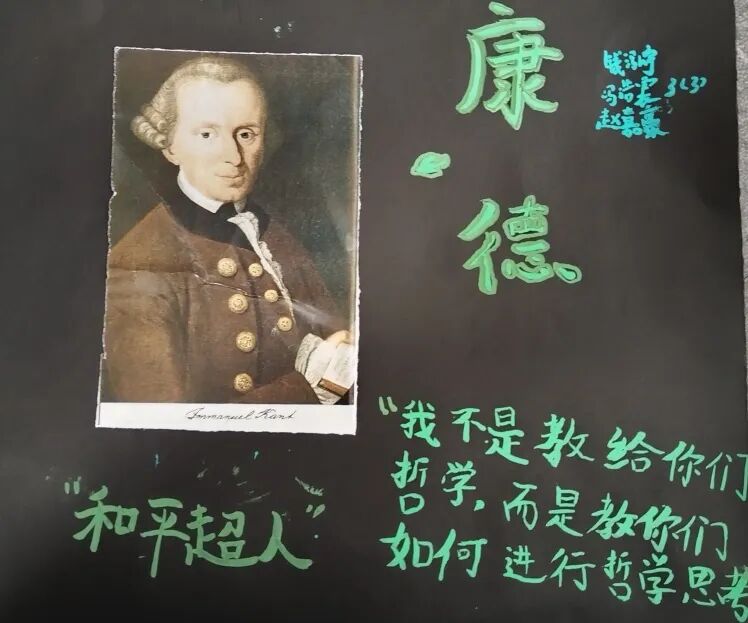 康·德
冯浩雯 3(3)
赵嘉豪
Immanuel Kant
"我不是教给你们
哲学,而是教你们
如何进行哲学思考
"和平超人"